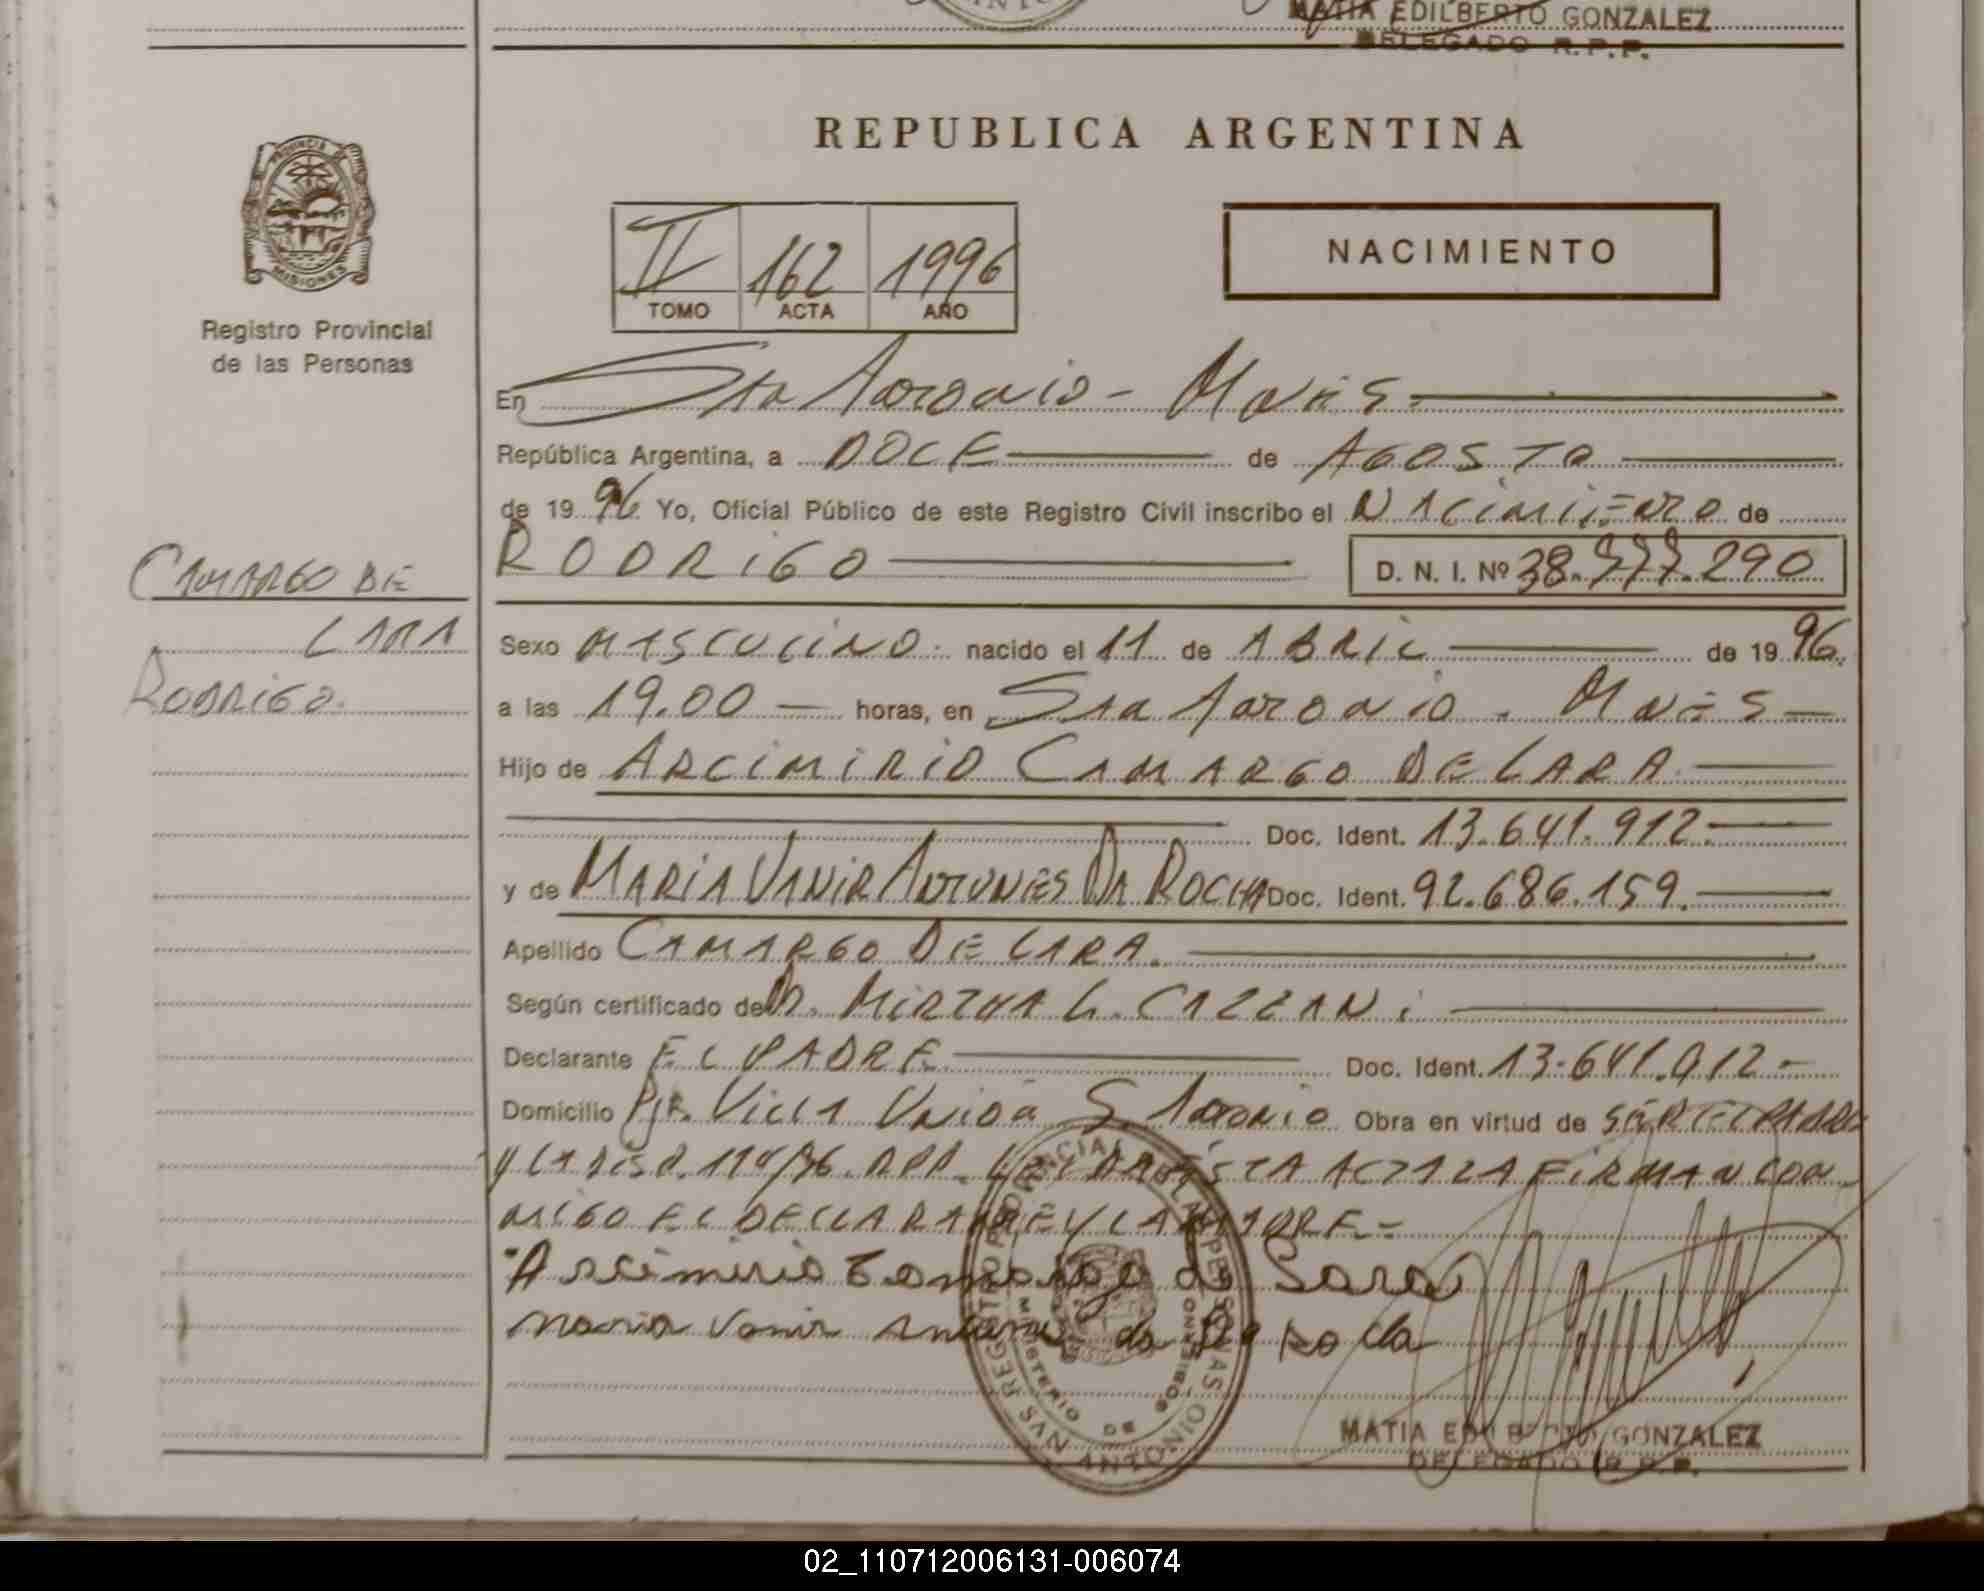 MATIA EDILBERTO GONZALEZ
DELEGADO R.P.P.
REPUBLICA ARGENTINA
PROVINCIA DE
MISIONES
Registro Provincial
de las Personas
II 162 1996
TOMO ACTA AÑO
NACIMIENTO
En Sta Antonio - Mnes.
República Argentina, a DOCE de AGOSTO
de 19 96 Yo, Oficial Público de este Registro Civil inscribo el NACIMIENTO de
RODRIGO D. N. I. Nº 38.777.290
CAMARGO DE
LARA
RODRIGO.
Sexo MASCULINO. nacido el 11 de ABRIL de 19 96.
a las 19.00 horas, en Sta Antonio. Mnes
Hijo de ARCIMIRIO CAMARGO DE LARA
Doc. Ident. 13.641.912.
y de MARIA VANIR ANTUNES DA ROCHA Doc. Ident. 92.686.159.
Apellido CAMARGO DE LARA.
Según certificado de Dr. MIRTHA L. CAZZANi
Declarante EL PADRE Doc. Ident. 13.641.912-
Domicilio Pje. VILLA Unión S. Antonio Obra en virtud de SER EL PADRE
Y LA DISP. 114/96. RPP. ESTA ACTA LA FIRMAN CON
MIGO EL DECLARANTE Y LA MADRE.=
Arcimirio Camargo de Lara
Maria Vanir Antunes da Rocha
REGISTRO PROVINCIAL DE LAS PERSONAS
MINISTERIO DE GOBIERNO
SAN ANTONIO
MATIA EDILBERTO GONZALEZ
DELEGADO R.P.P.
02_110712006131-006074